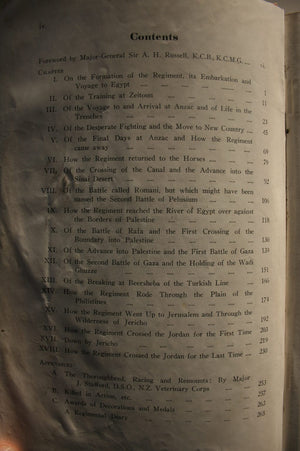 iv.
Contents
Foreword by Major-General Sir A. H. Russell, K.C.B., K.C.M.G. ... vi.
CHAPTER
I. On the Formation of the Regiment, its Embarkation and
Voyage to Egypt ... 1
II. Of the Training at Zeitoun ... 11
III. Of the Voyage to and Arrival at Anzac and of Life in the
Trenches ... 23
IV. Of the Desperate Fighting and the Move to New Country ... 45
V. Of the Final Days at Anzac and How the Regiment
came away ... 69
VI. How the Regiment returned to the Horses ... 79
VII. Of the Crossing of the Canal and the Advance into the
Sinai Desert ... 92
VIII. Of the Battle called Romani, but which might have been
named the Second Battle of Pelusium ... 106
IX. How the Regiment reached the River of Egypt over against
the Borders of Palestine ... 118
X. Of the Battle of Rafa and the First Crossing of the
Boundary into Palestine ... 130
XI. Of the Advance into Palestine and the First Battle of Gaza
XII. Of the Second Battle of Gaza and the Holding of the Wadi
Ghuzze ... 151
XIII. Of the Breaking at Beersheba of the Turkish Line ... 166
XIV. How the Regiment Rode Through the Plain of the
Philistines ... 174
XV. How the Regiment Went Up to Jerusalem and Through the
Wilderness of Jericho ... 192
XVI. How the Regiment Crossed the Jordan for the First Time
XVII. Down by Jericho ... 219
XVIII. How the Regiment Crossed the Jordan for the Last Time ... 230
APPENDICES
A. The Thoroughbred, Racing and Remounts: By Major
J. Stafford, D.S.O., N.Z. Veterinary Corps ... 253
B. Killed in Action, etc. ... 257
C. Awards of Decorations and Medals ... 263
A Regimental Diary ... 265